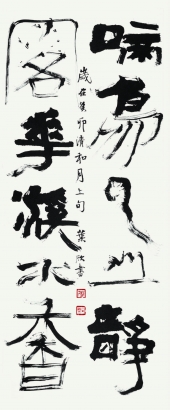 啼鳥云山靜
落華溪水香
歲在癸卯清和月上旬 葉欣書